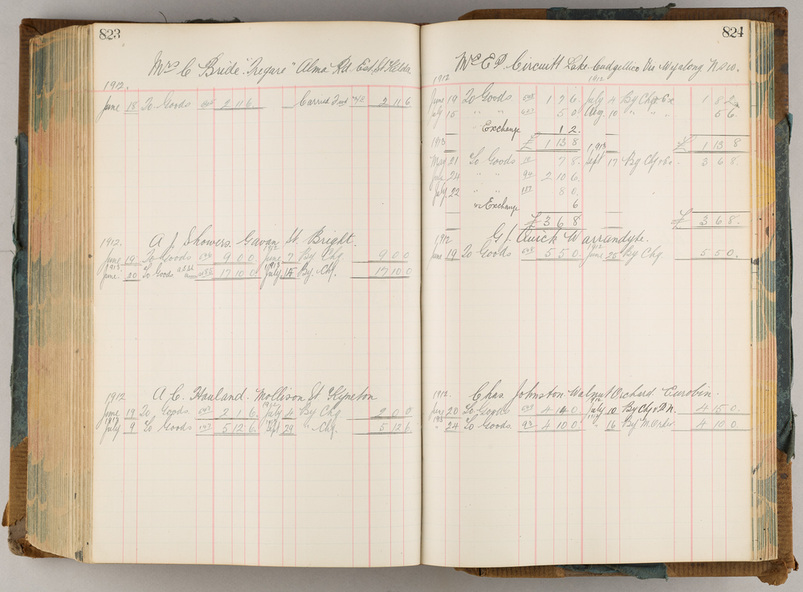 823
Mrs C Bride "Trepare" Alma Rd. East St Kilda.
1912.
June 18 To Goods 2 11 6 Carried Fwd 2 11 6
1912. A J Showers Gavan St. Bright.
June 19 To Goods 9 0 0 June 7 By Chq 9 0 0
June 20 To Goods 17 10 0 July 15 By Chq. 17 10 0
1912 A C Hauland Mollison St Kyneton
June 19 To Goods 2 1 6 July 4 By Chq 2 0 0
July 9 To Goods 5 12 6 Sept 29 " Chq. 5 12 6
824
Mr E P Circuitt Lake Cudgellico Via Wyalong NSW.
1912 1912
June 19 To Goods 1 7 6 July 4 By Chq & Ex 1 8 2
July 15 " " 5 0 Aug 10 " " " 5 6
Exchange 1 2
1913 £ 1 13 8 1913 £ 1 13 8
May 21 To Goods 7 8 Sept 17 By Chq & Ex 3 6 8
June 24 " " 2 10 6
July 22 " " 8 0
" Exchange 6
£ 3 6 8 £ 3 6 8
1912 G S. Quick Warrandyte.
June 19 To Goods 5 5 0 June 25 By Chq 5 5 0
1912. Chas Johnston Walnut Orchard Eurobin.
June 20 To Goods 4 14 0 July 10 By Chq & P.N. 4 15 0
" 24 To Goods 4 10 0 " 16 By M Order 4 10 0